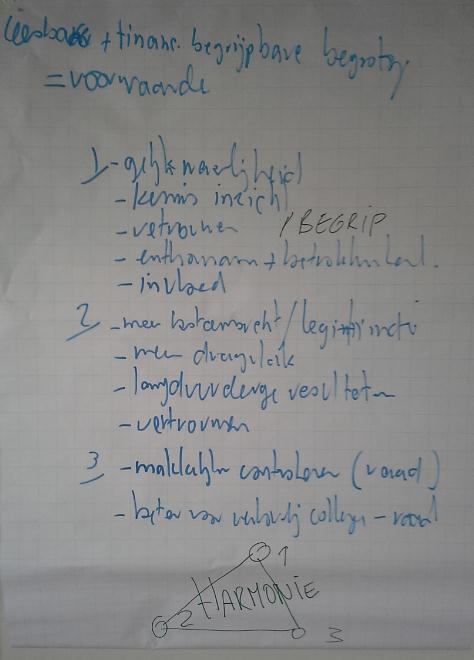 leesbare + financ. begrijpbare begroting
= voorwaarde
1 - gelijkwaardigheid
- kennis inzicht
- vertrouwen / BEGRIP
- enthousiasm + betrokkenheid.
- invloed
2 - meer / legitimiteit
- meer draagvlak
- langdurige resultaten
- vertrouwen
3 - makkelijker controleren (raad)
- beter college - raad
HARMONIE
1
2
3